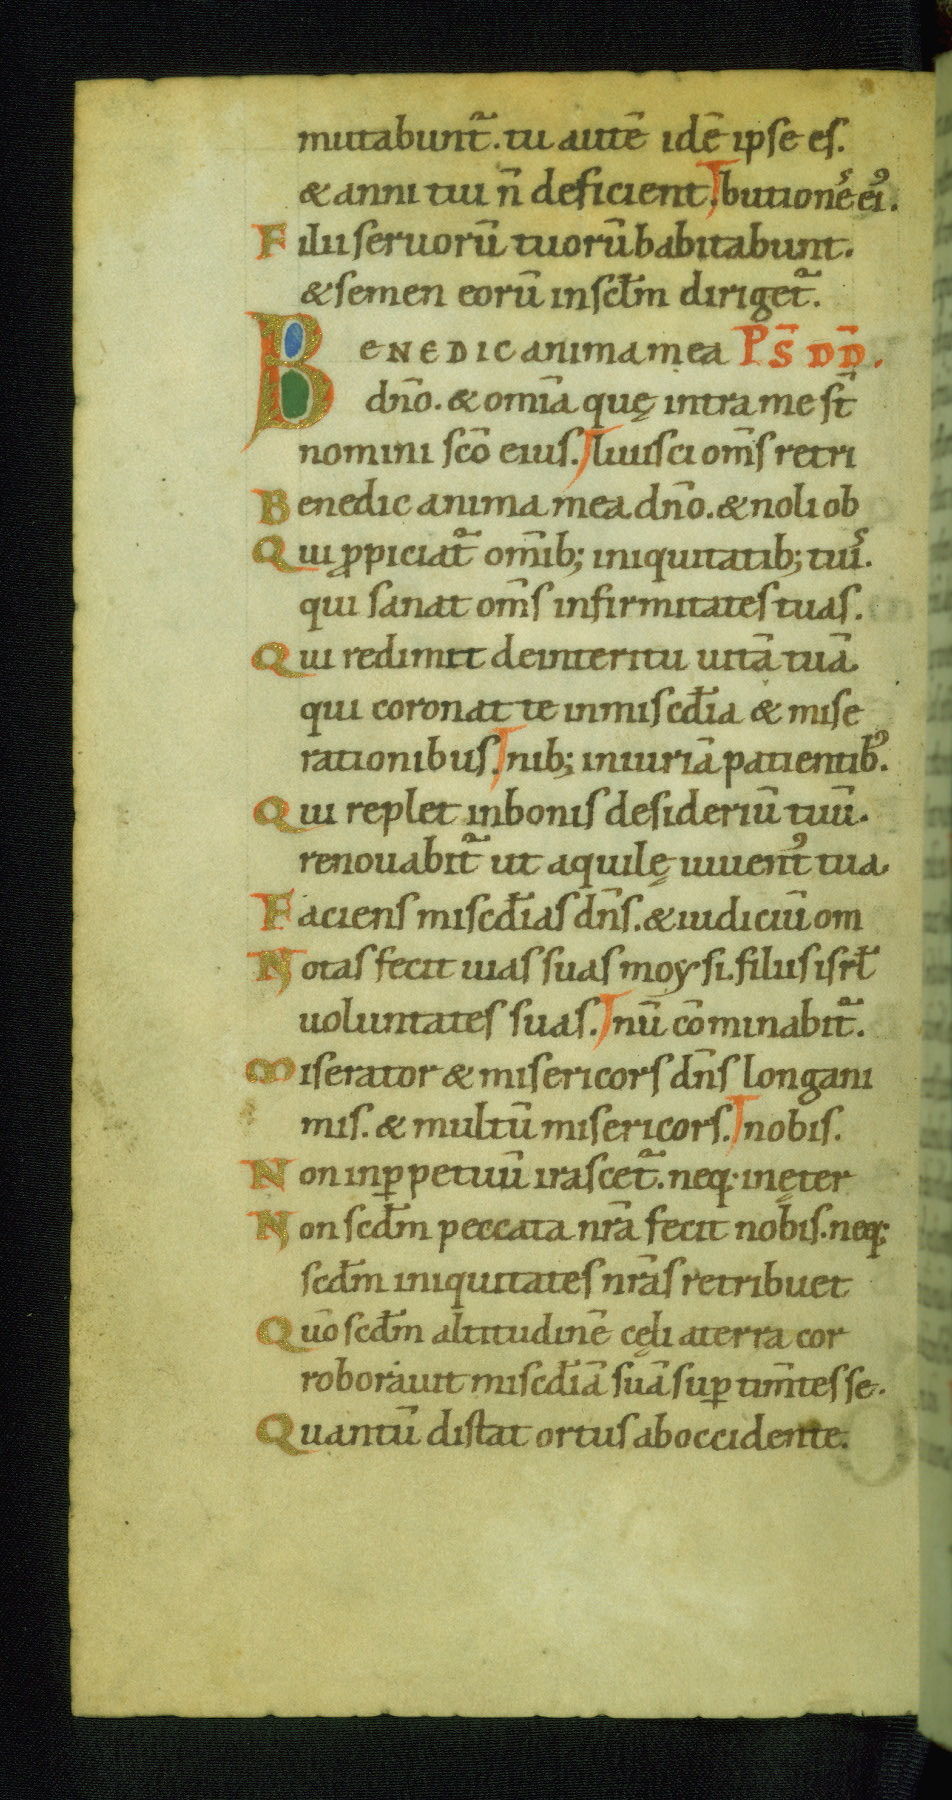 mutabunt᷒. tu autē idē ipse es.
& anni tui n̄ deficient. butionēs ei⁹.
Filii seruorū tuorū habitabunt.
& semen eorū in sc̄lm diriget᷒.
BENEDIC anima mea PS̄ DD̄.
dn̄o. & om̄ia quę intra me st̄
nomini sc̄o eius. liuisci om̄s retri
Benedic anima mea dn̄o. & noli ob
Qui ꝓpiciat᷒ om̄ib; iniquitatib; tuis.
qui sanat om̄s infirmitates tuas.
Qui redimit de interitu uitā tuā
qui coronat te in misc̄dia & mise
rationibus. nib; iniuriā patientib⁹.
Qui replet in bonis desideriū tuū.
renouabit᷒ ut aquilę iuuent⁹ tua.
Faciens misc̄dias dn̄s. & iudiciū om
Notas fecit uias suas moysi. filiis isr̄l
uoluntates suas. nū cōminabit᷒.
Miserator & misericors dn̄s longani
mis. & multū misericors. nobis.
Non in ꝑpetuū irascet᷒. neq; in ęter
Non sc̄dm peccata nr̄a fecit nobis. neq;
sc̄dm iniquitates nr̄as retribuet
Quō sc̄dm altitudinē cęli a terra cor
roborauit misc̄diā suā suꝑ tim̄tes se.
Quantū distat ortus ab occidente.